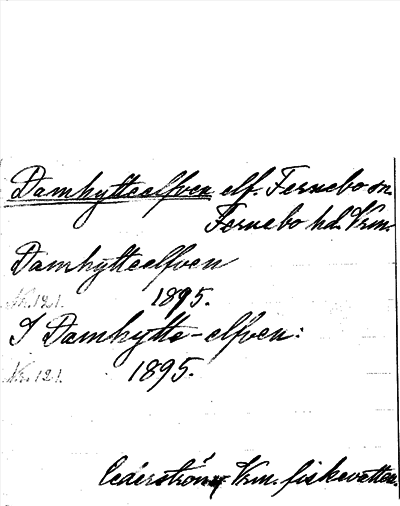 Damhytteelfven elf. Fernebo sn.
Fernebo hd. Vrm.
Damhytteelfven
Nr. 121. 1895.
I Damhytte-elfven:
Nr. 121. 1895.
Cederström, Vrm. fiskevatten.